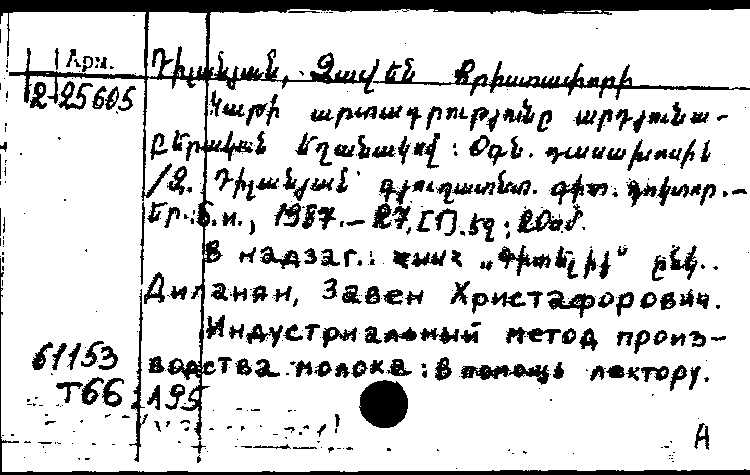 Арм. Դիլանյան, Զավեն Քրիստափորի
2-25605 Կաթի արտադրությունը արդյունա-
բերական եղանակով : Օգն. դասախոսին
/Զ. Դիլանյան գյուղատնտ. գիտ. դոկտոր.—
Եր.: Б.и., 1987.— 27,[1].էջ ; 20սմ.
В надзаг.: ՀՍՍՀ „Գիտելիք" ընկ..
Диланян, Завен Христафорович.
Индустриальный метод произ-
61153 водства молока : В помощь лектору.
Т66 : А95
А